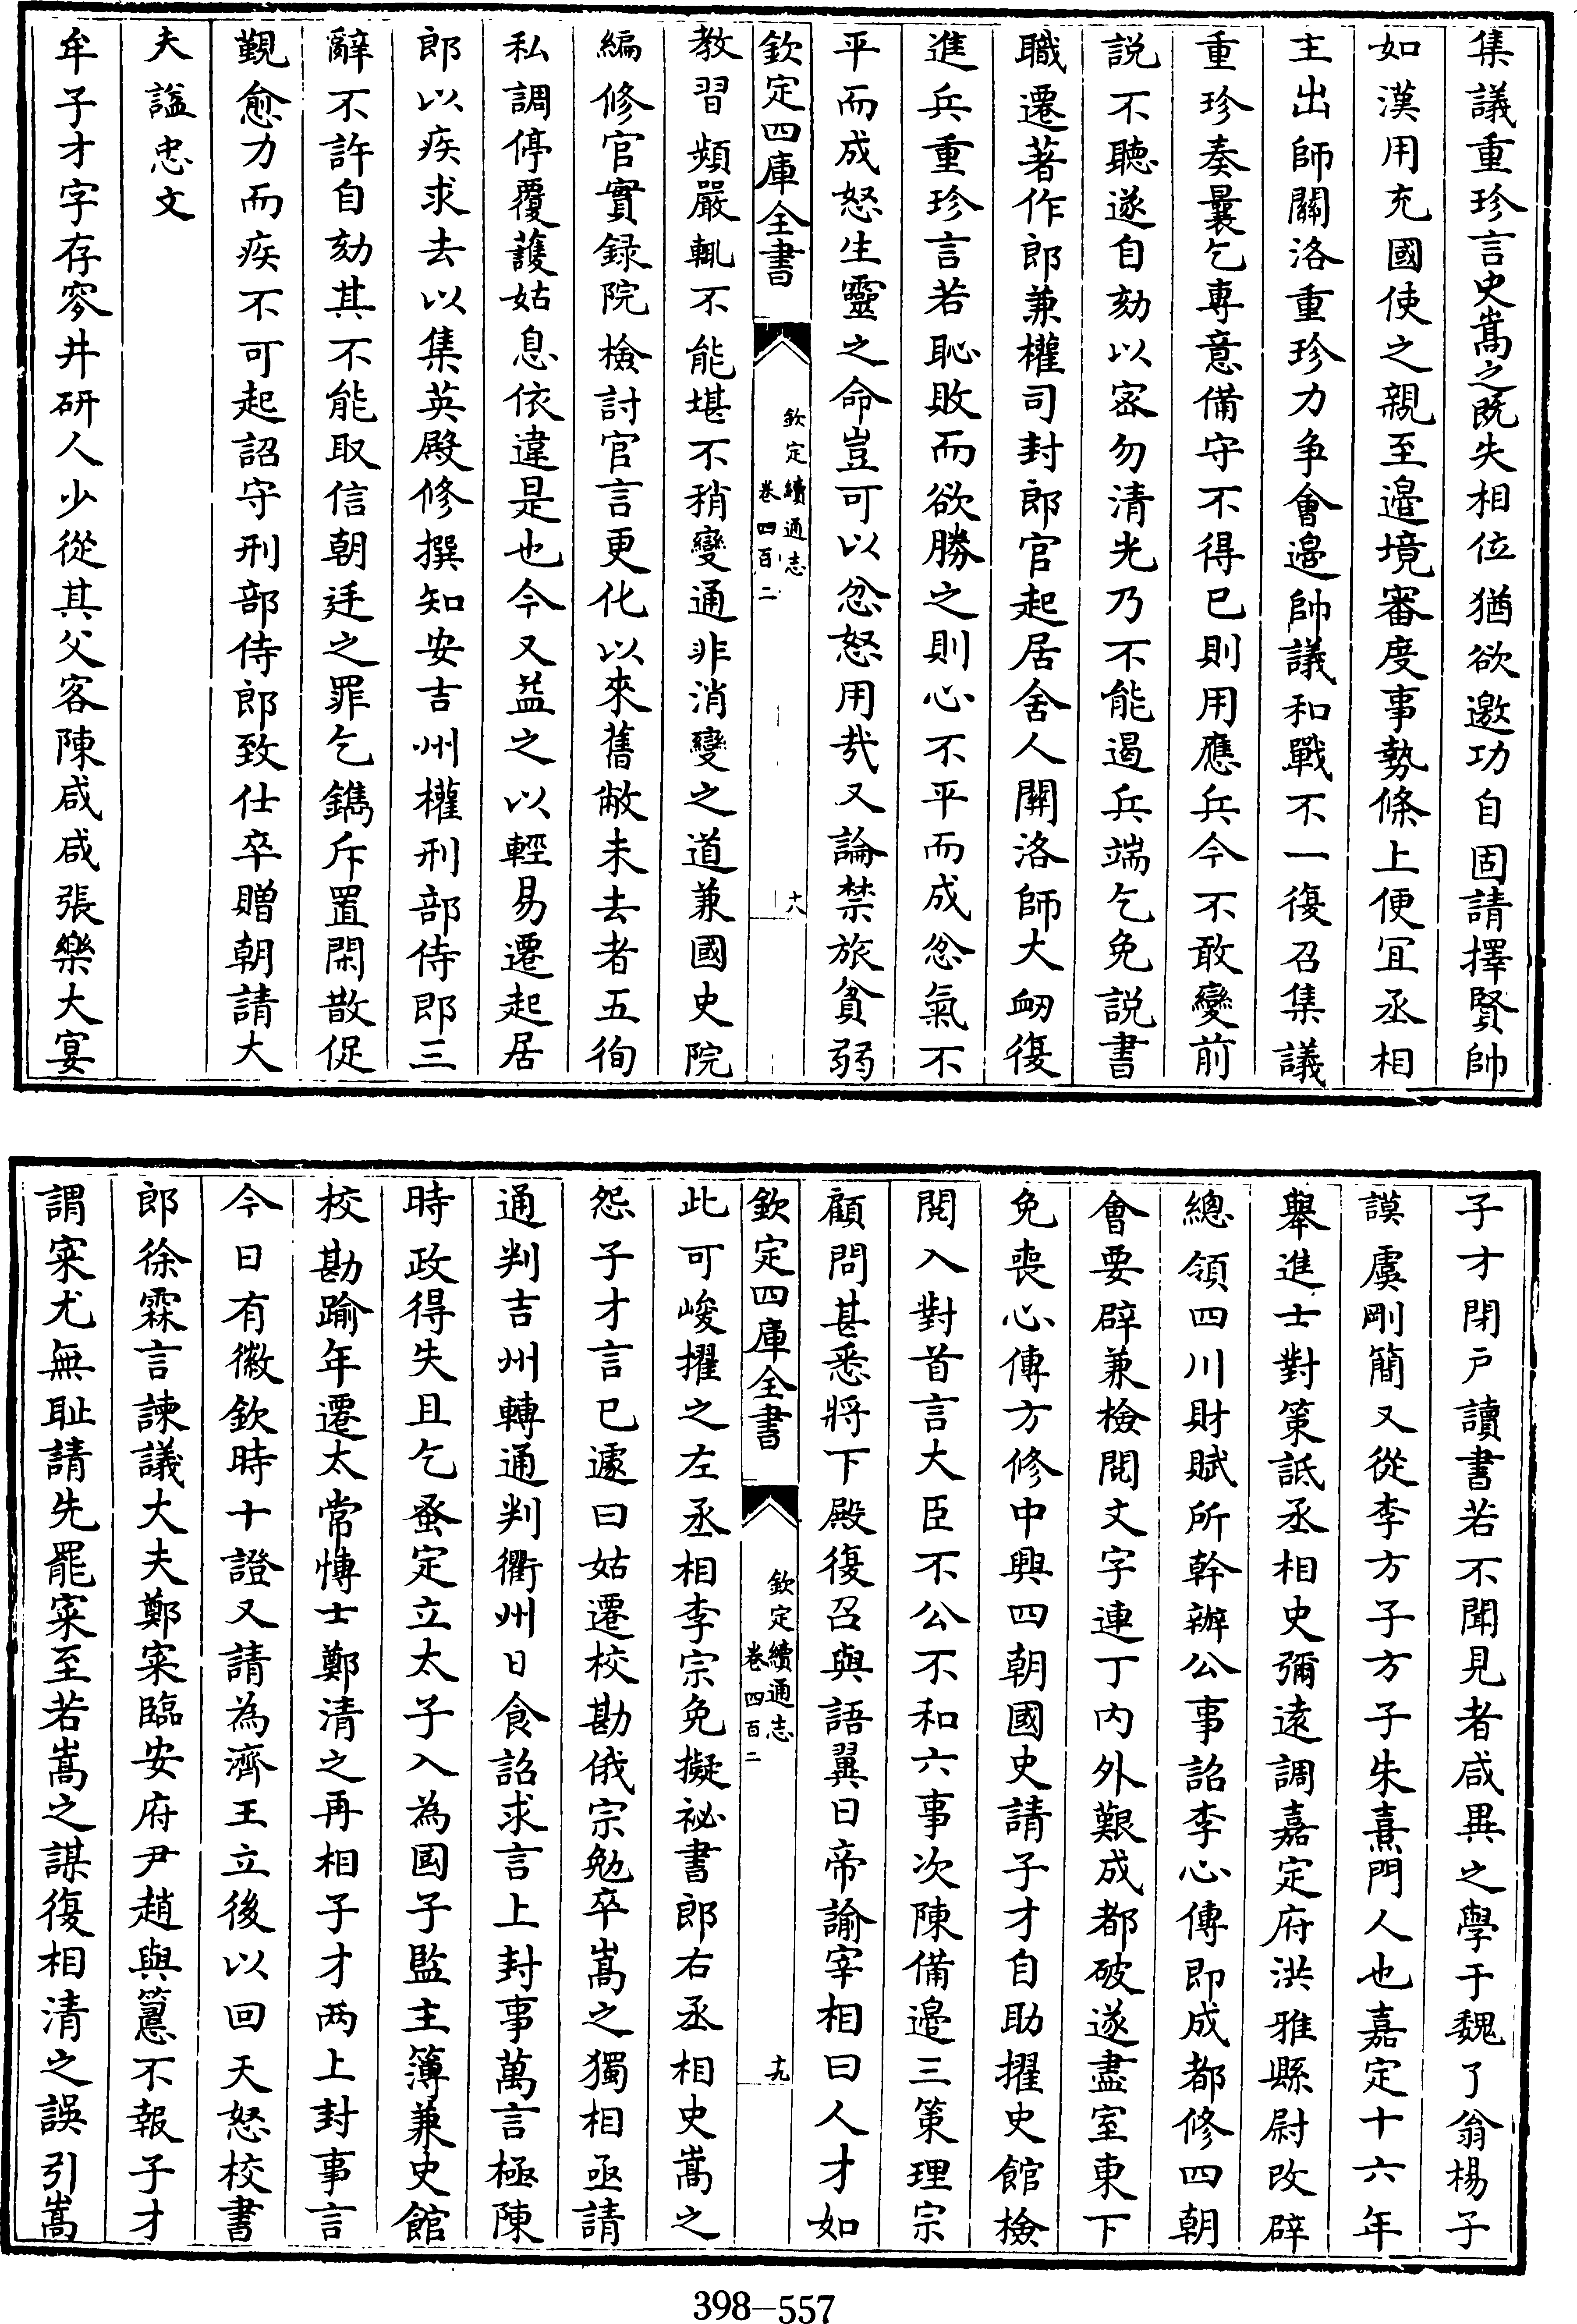 集議重珍言史嵩之既失相位猶欲邀功自固請擇賢帥
如漢用充國使之親至邉境審度事勢條上便冝丞相
主出師關洛重珍力争會邉帥議和戰不一復召集議
重珍奏曩乞專意備守不得已則用應兵今不敢變前
説不聽遂自劾以宻勿清光乃不能遏兵端乞免説書
職遷著作郎兼權司封郎官起居舍人關洛師大衂復
進兵重珍言若恥敗而欲勝之則心不平而成忿氣不
平而成怒生靈之命豈可以忿怒用㢤又論禁旅貧弱
欽定四庫全書
欽定續通志
卷四百二
十八
教習頻嚴輒不能堪不稍變通非消變之道兼國史院
編修官實録院檢討官言更化以來舊敝未去者五徇
私調停覆護姑息依違是也今又益之以輕易遷起居
郎以疾求去以集英殿修撰知安吉州權刑部侍郎三
辭不許自劾其不能取信朝廷之罪乞鐫斥置閑散促
覲愈力而疾不可起詔守刑部侍郎致仕卒贈朝請大
夫諡忠文
牟子才字存叜井研人少從其父客陳咸咸張樂大宴
子才閉戸讀書若不聞見者咸異之學于魏了翁楊子
謨虞剛簡又從李方子方子朱熹門人也嘉定十六年
舉進士對策詆丞相史彌遠調嘉定府洪雅縣尉改辟
總領四川財賦所幹辦公事詔李心傳即成都修四朝
會要辟兼檢閱文字連丁内外艱成都破遂盡室東下
免喪心傳方修中興四朝國史請子才自助擢史館檢
閱入對首言大臣不公不和六事次陳備邉三策理宗
顧問甚悉將下殿復召與語翼日帝諭宰相曰人才如
欽定四庫全書
欽定續通志
卷四百二
十九
此可峻擢之左丞相李宗免擬祕書郎右丞相史嵩之
怨子才言已遽曰姑遷校勘俄宗勉卒嵩之獨相亟請
通判吉州轉通判衢州日食詔求言上封事萬言極陳
時政得失且乞蚤定立太子入為國子監主簿兼史館
校勘踰年遷太常愽士鄭清之再相子才两上封事言
今日有徽欽時十證又請為濟王立後以回天怒校書
郎徐霖言諫議大夫鄭寀臨安府尹趙與𥲅不報子才
謂寀尤無恥請先罷寀至若嵩之謀復相清之誤引嵩
398—557